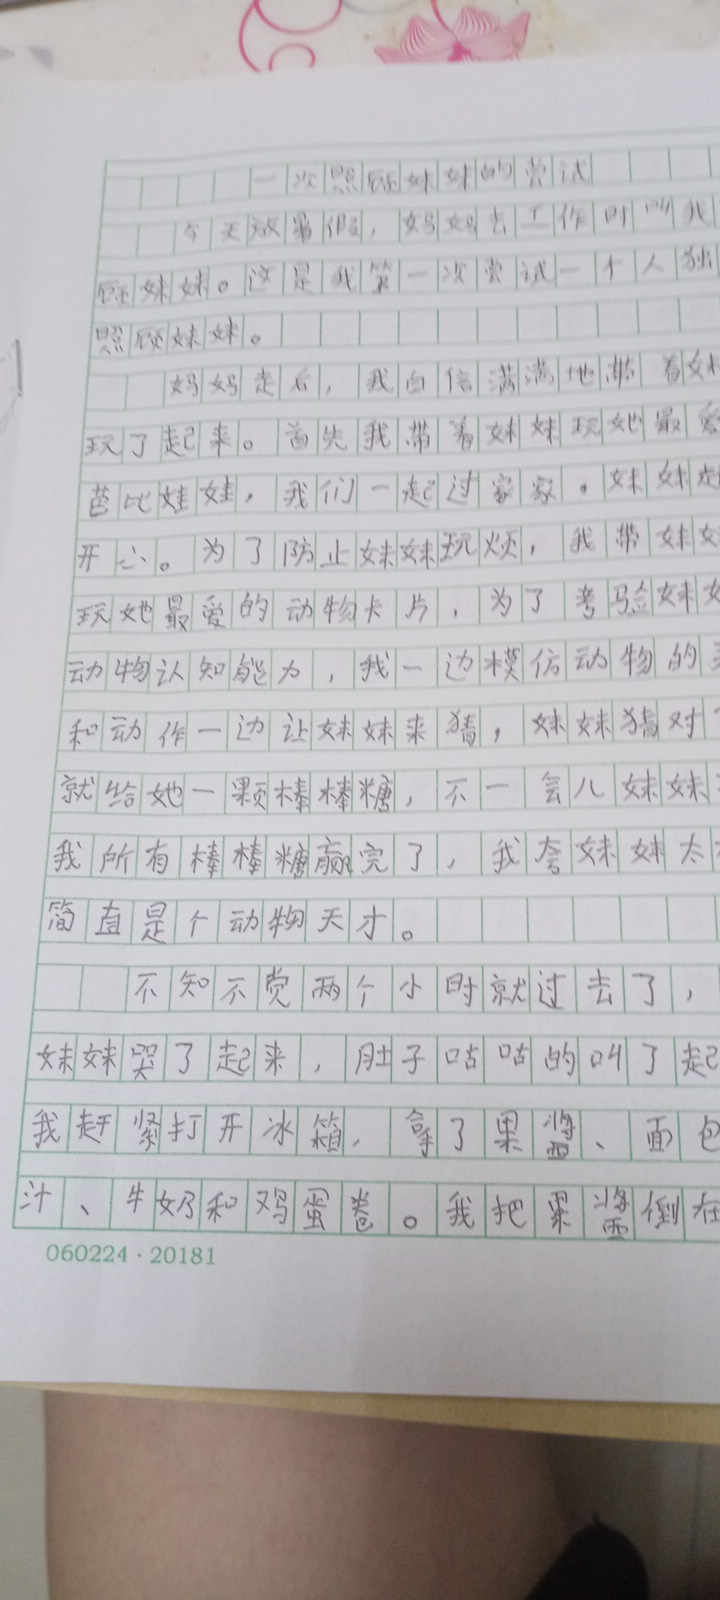 一次照顾妹妹的尝试
今天放暑假，妈妈去工作时叫我
顾妹妹。这是我第一次尝试一个人独
照顾妹妹。
妈妈走后，我自信满满地带着妹
玩了起来。首先我带着妹妹玩她最爱
芭比娃娃，我们一起过家家。妹妹
开心。为了防止妹妹玩烦，我带妹
玩她最爱的动物卡片，为了考验妹
动物认知能力，我一边模仿动物的
和动作一边让妹妹来猜，妹妹猜对
就给她一颗棒棒糖，不一会儿妹妹
我所有棒棒糖赢完了，我夸妹妹太
简直是个动物天才。
不知不觉两个小时就过去了，
妹妹哭了起来，肚子咕咕的叫了起
我赶紧打开冰箱，拿了果酱、面包
汁、牛奶和鸡蛋卷。我把果酱倒在
060224·20181